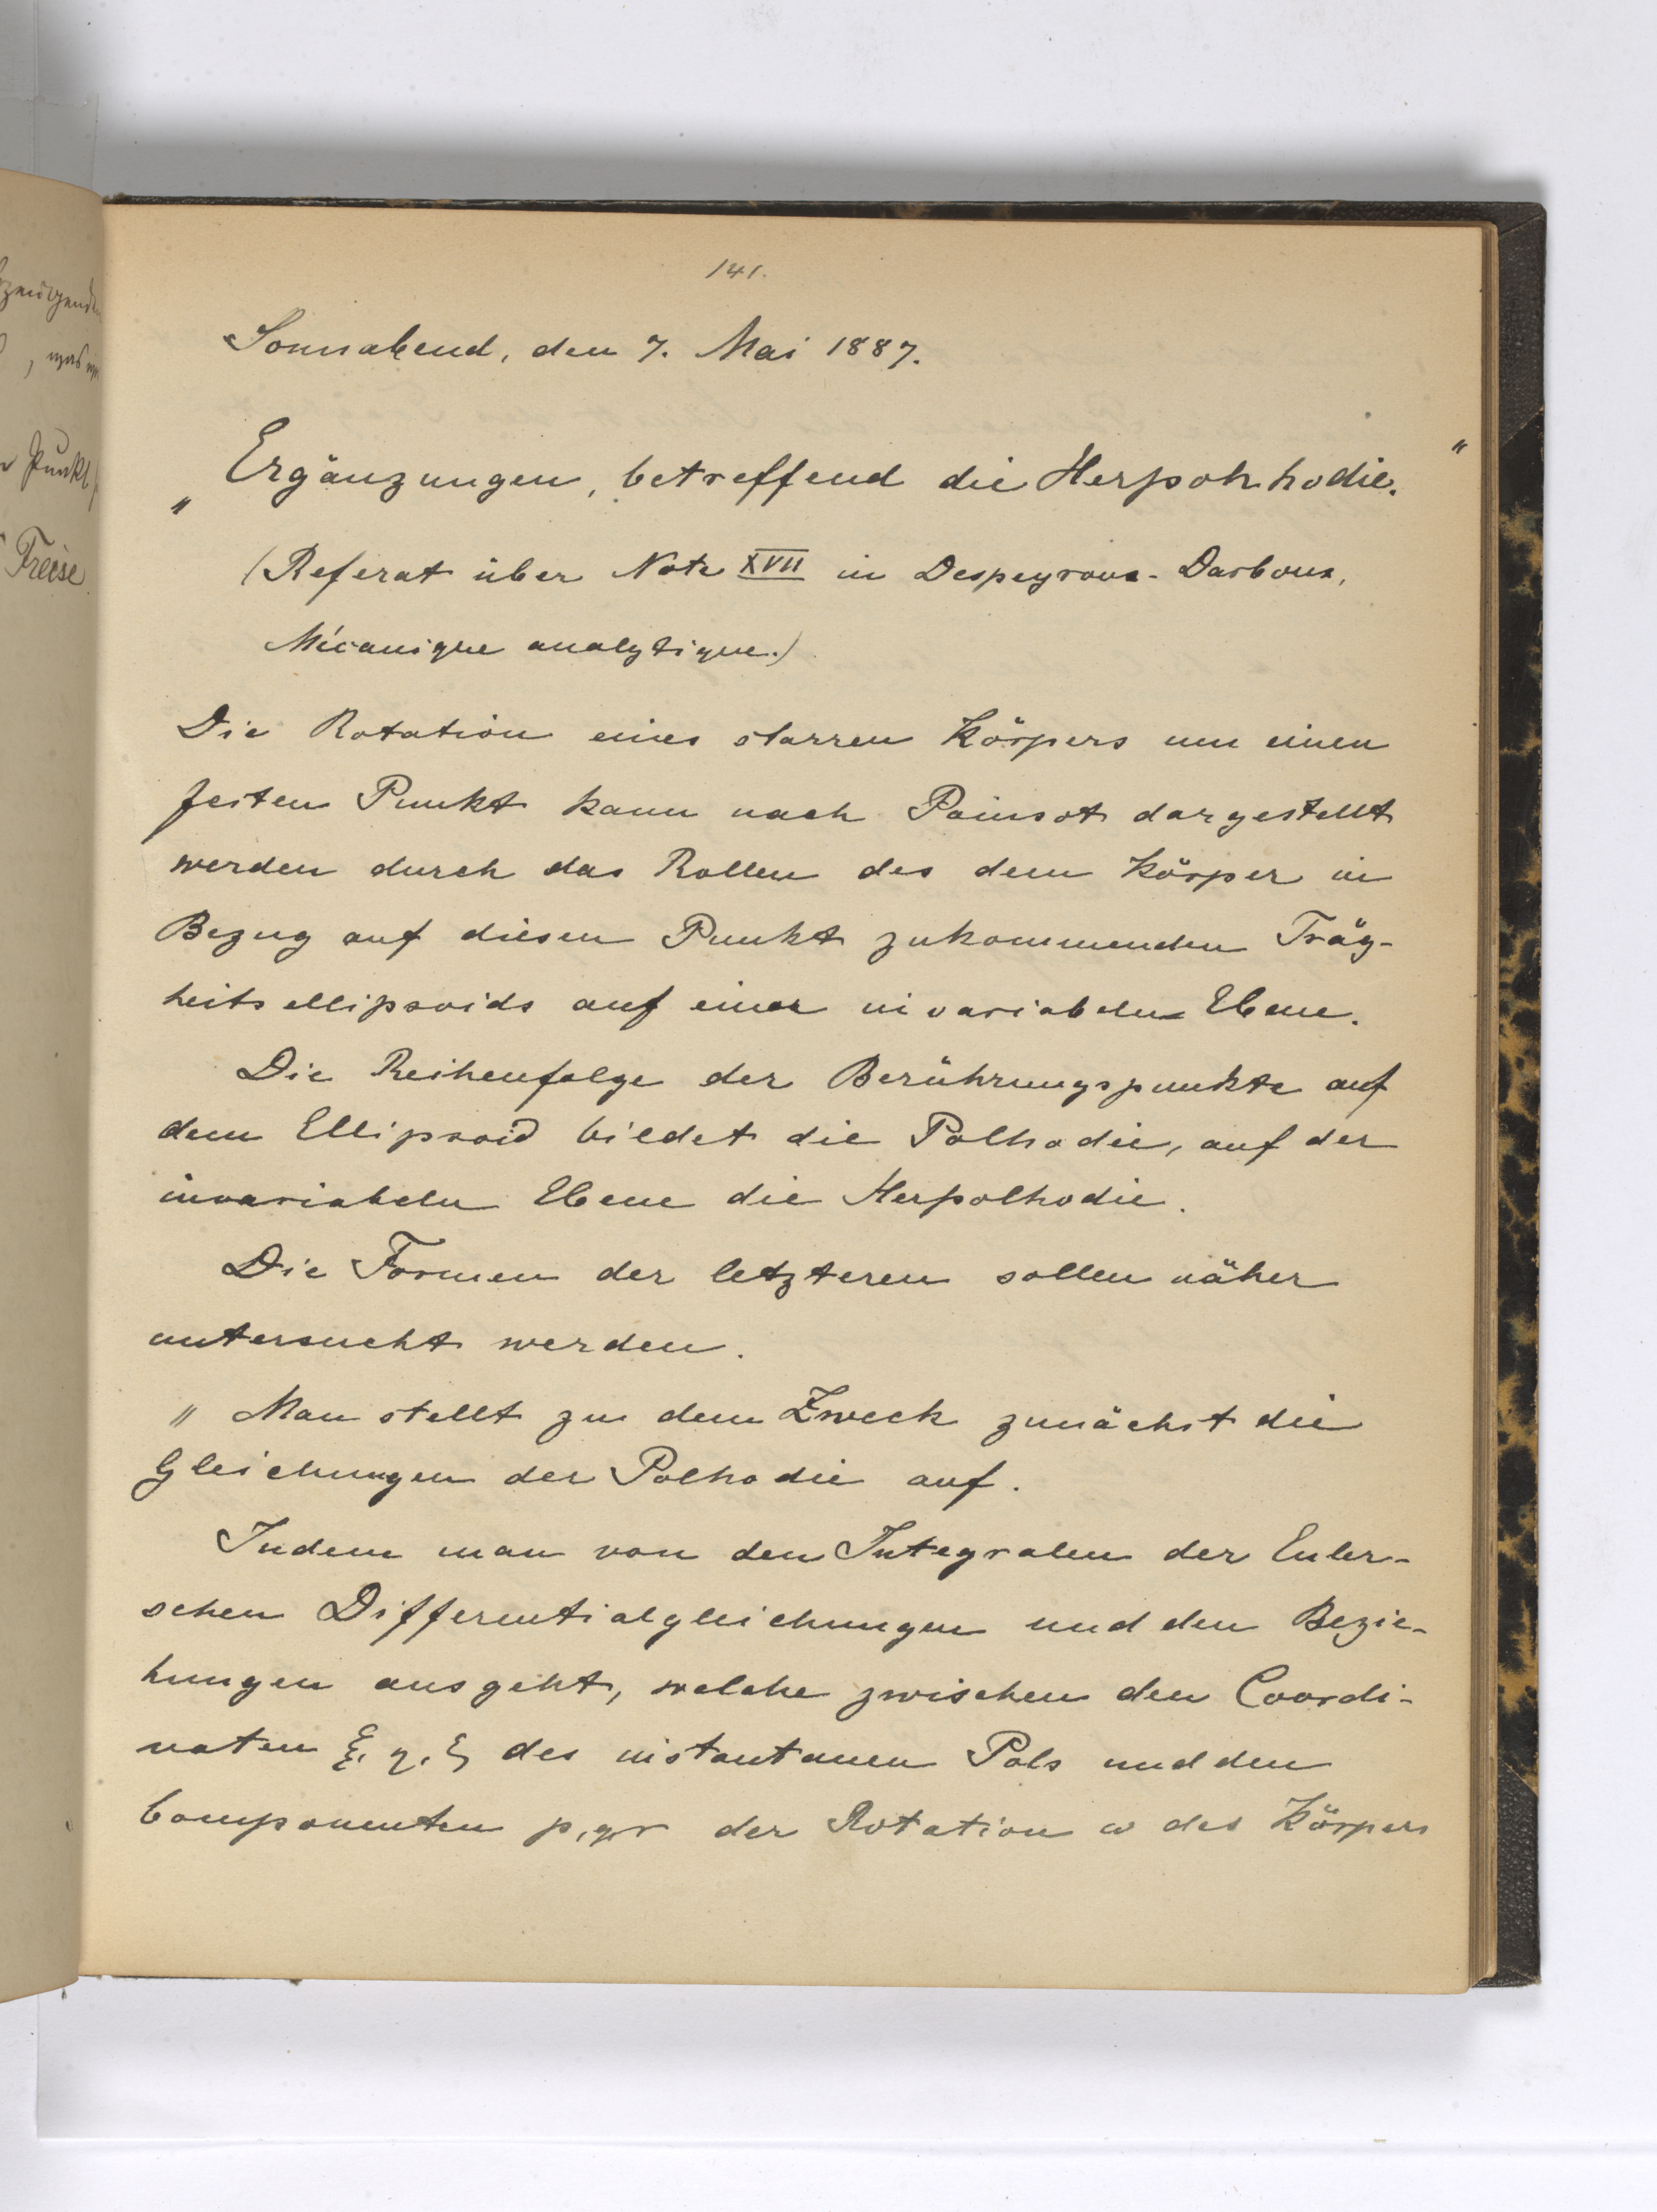 141.
Sonnabend, den 7. Mai 1887.
„Ergänzungen, betreffend die Herpohlhodie."
(Referat über Note XVII in Despeyrous-Darboux,
Mécanique analytique.)
Die Rotation eines starren Körpers um einen
festen Punkt kann nach Poinsot dargestellt
werden durch das Rollen des dem Körper in
Bezug auf diesen Punkt zukommenden Träg-
heitsellipsoids auf einer invariabelen Ebene.
Die Reihenfolge der Berührungspunkte auf
dem Ellipsoid bildet die Polhodie, auf der
invariabeln Ebene die Herpolhodie.
Die Formen der letzteren sollen näher
untersucht werden.
„ Man stellt zu dem Zweck zunächst die
Gleichungen der Polhodie auf.
Indem man von den Integralen der Euler-
schen Differentialgleichungen und den Bezie-
hungen ausgeht, welche zwischen den Coordi-
naten ξ, η, ζ des instantanen Pols und den
Componenten p, q, r der Rotation ω des Körpers
zeugenden
, was
Punkt
Freise